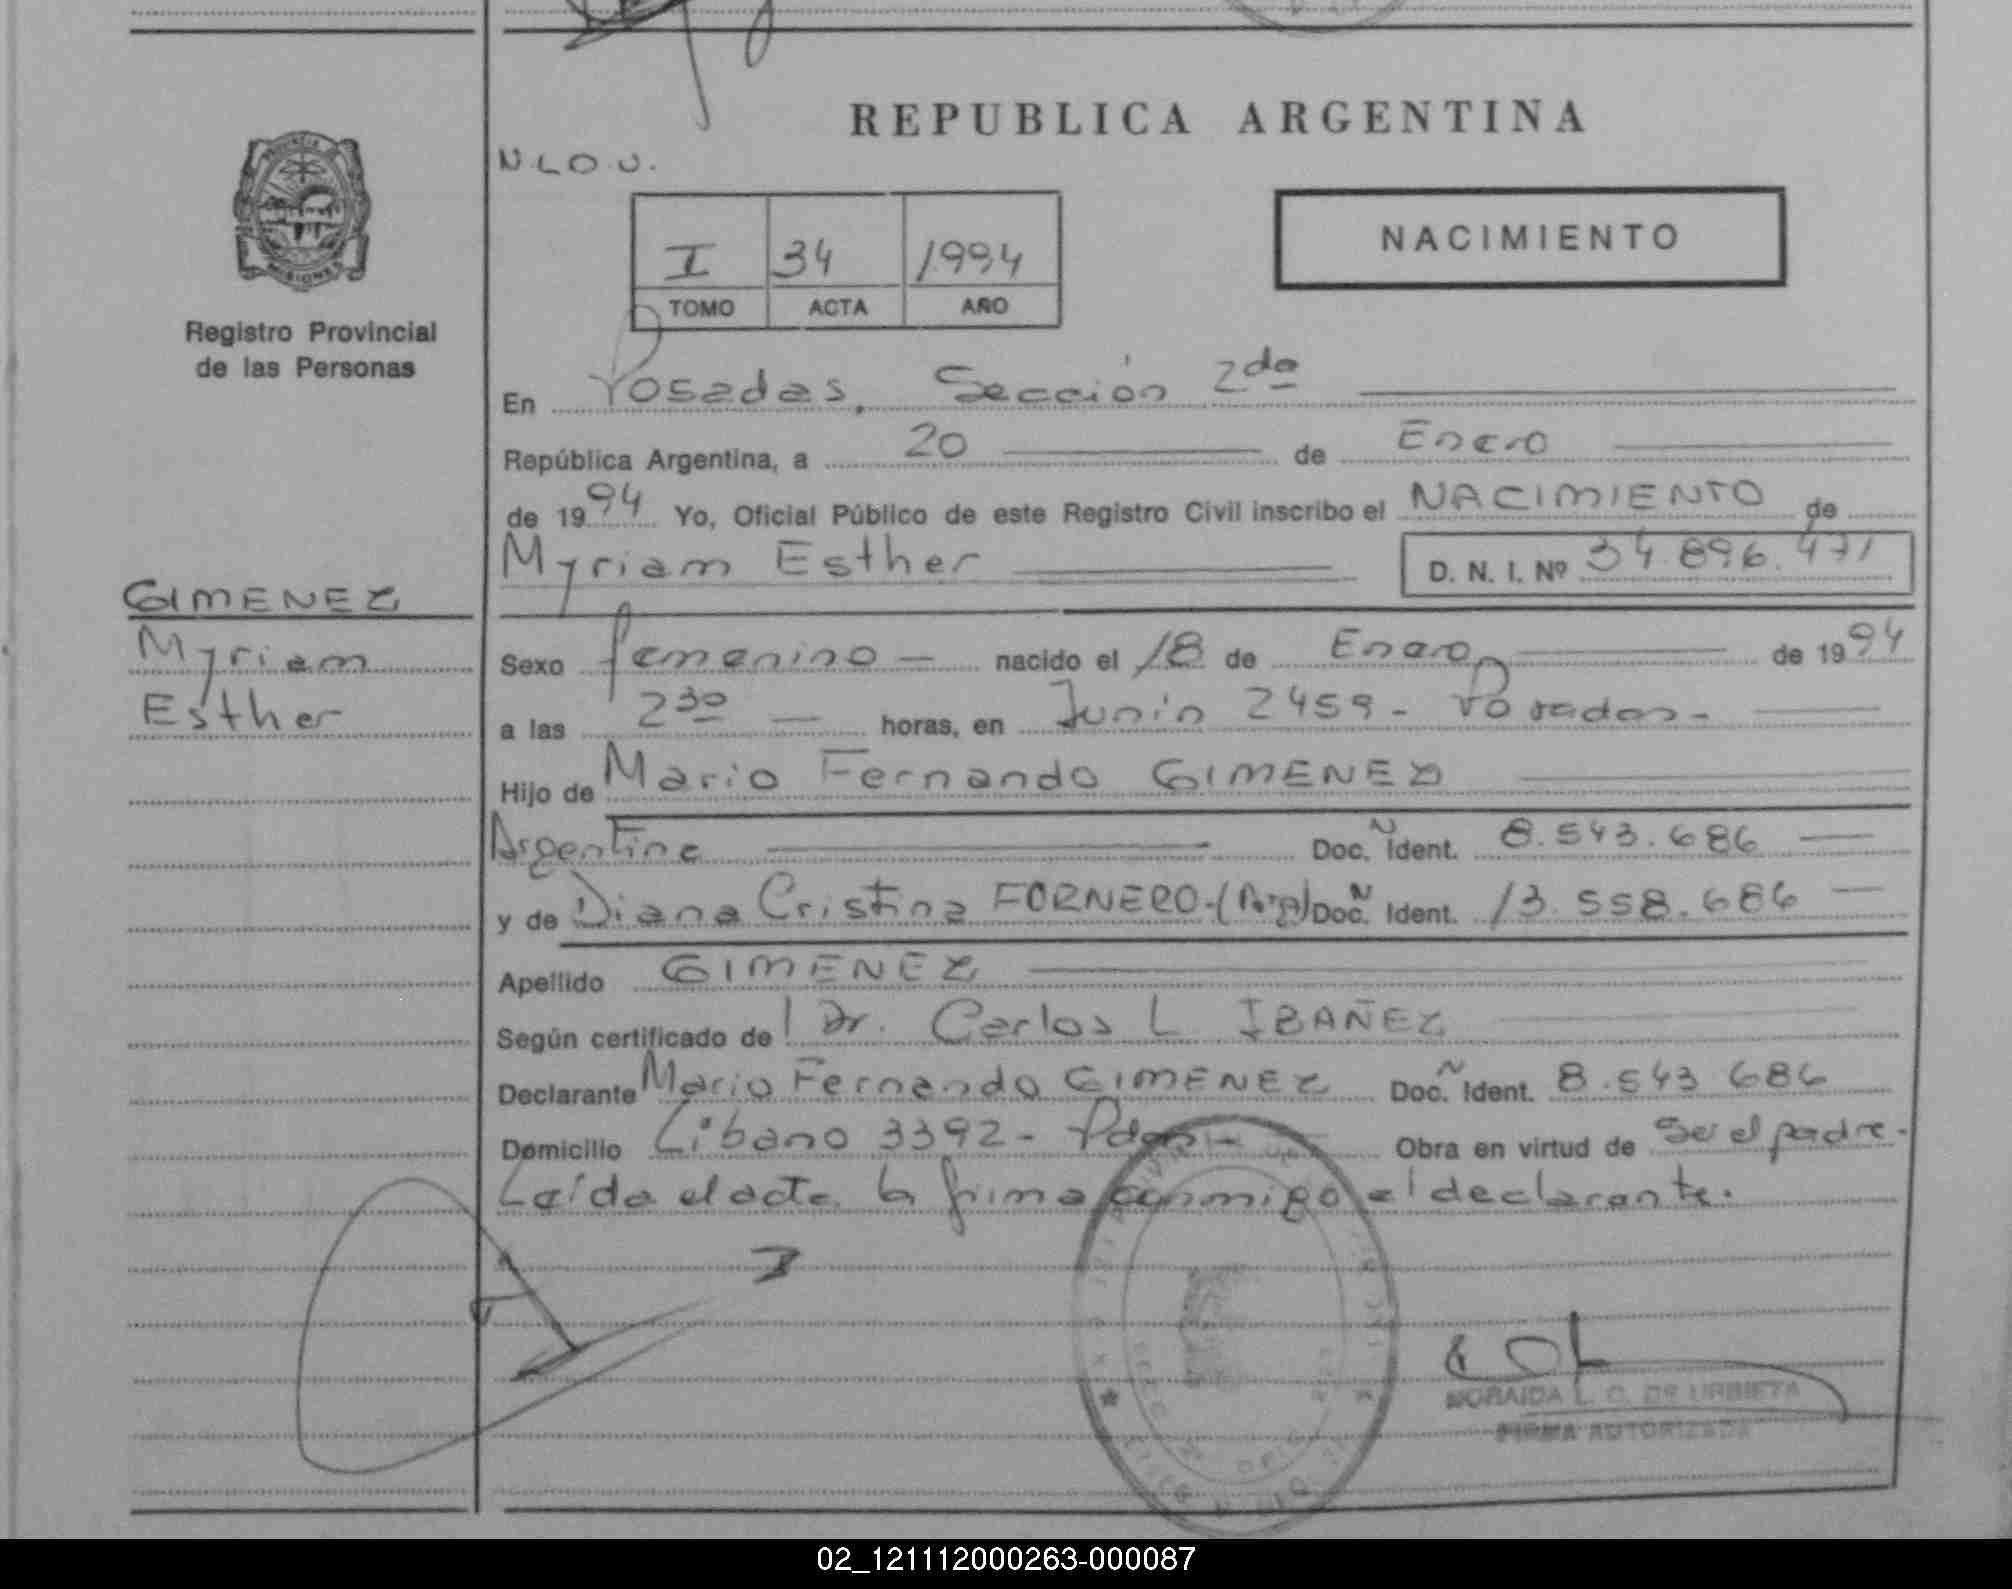 REPUBLICA ARGENTINA
N.L.O.U.
I 34 1994
TOMO ACTA AÑO
NACIMIENTO
MISIONES
Registro Provincial
de las Personas
En Posadas, Sección 2da
República Argentina, a 20 de Enero
de 1994 Yo, Oficial Público de este Registro Civil inscribo el NACIMIENTO de
Myriam Esther D. N. I. Nº 34.896.471
GIMENEZ
Myriam
Esther
Sexo femenino nacido el 18 de Enero de 1994
a las 2 30 horas, en Junín 2459 - Posadas -
Hijo de Mario Fernando GIMENEZ
Argentina Doc. Ident. 8.543.686
y de Diana Cristina FORNERO. (Arg) Doc. Ident. 13.558.686
Apellido GIMENEZ
Según certificado de Dr. Carlos L IBAÑEZ
Declarante Mario Fernando GIMENEZ Doc. Ident. 8.543.686
Domicilio Libano 3392 - Pdas - Obra en virtud de ser el padre.
Leída el acta, la firma conmigo el declarante.
NORAIDA L. C. DE URBIETA
FIRMA AUTORIZADA
02_121112000263-000087